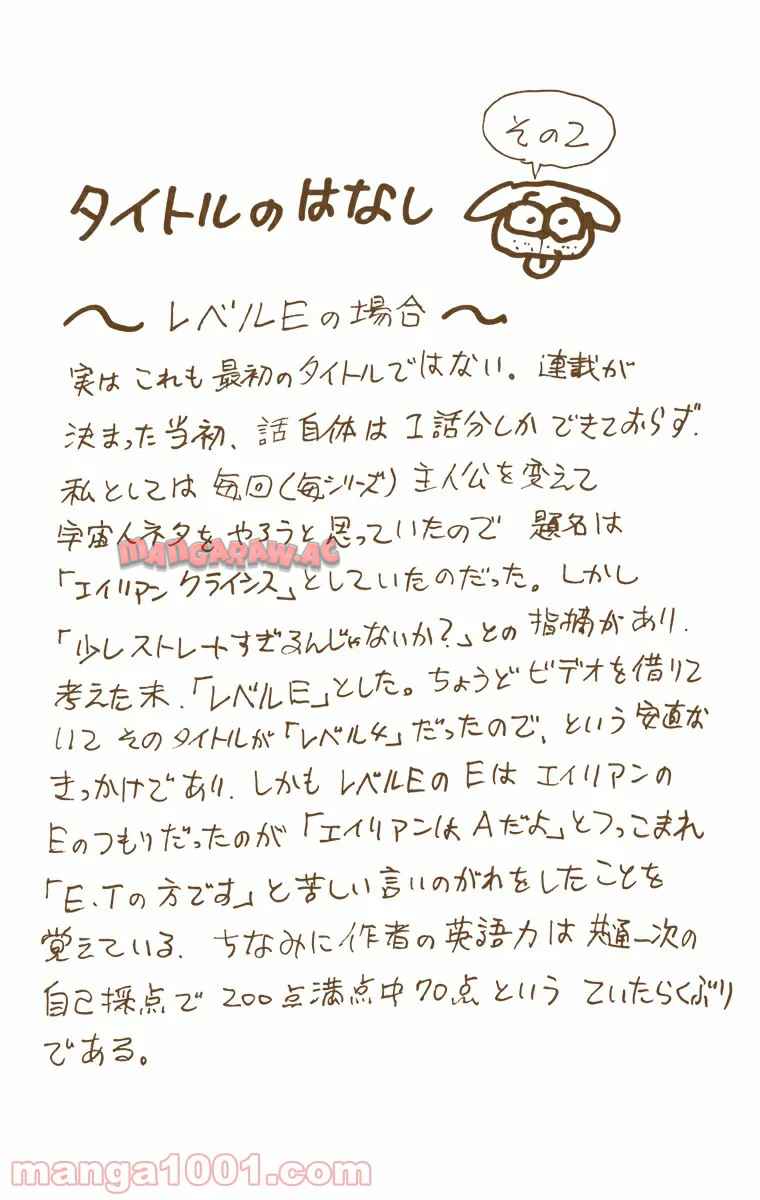 その2
タイトルのはなし
～レベルEの場合～
実はこれも最初のタイトルではない。連載が
決まった当初、話自体は1話分しかできておらず.
私としては毎回(毎シリーズ)主人公を変えて
宇宙人ネタをやろうと思っていたので題名は
MANGARAW.AC
「エイリアンクライシス」としていたのだった。しかし
「少しストレートすぎるんじゃないか?」との指摘があり.
考えた末.「レベルE」とした。ちょうどビデオを借りて
いてそのタイトルが「レベル4」だったので、という安直な
きっかけであり.しかもレベルEのEはエイリアンの
Eのつもりだったのが「エイリアンはAだよ」とつっこまれ
「E.Tの方です」と苦しい言いのがれをしたことを
覚えている.ちなみに作者の英語力は共通一次の
自己採点で200点満点中70点というていたらくぶり
である。
manga1001.com